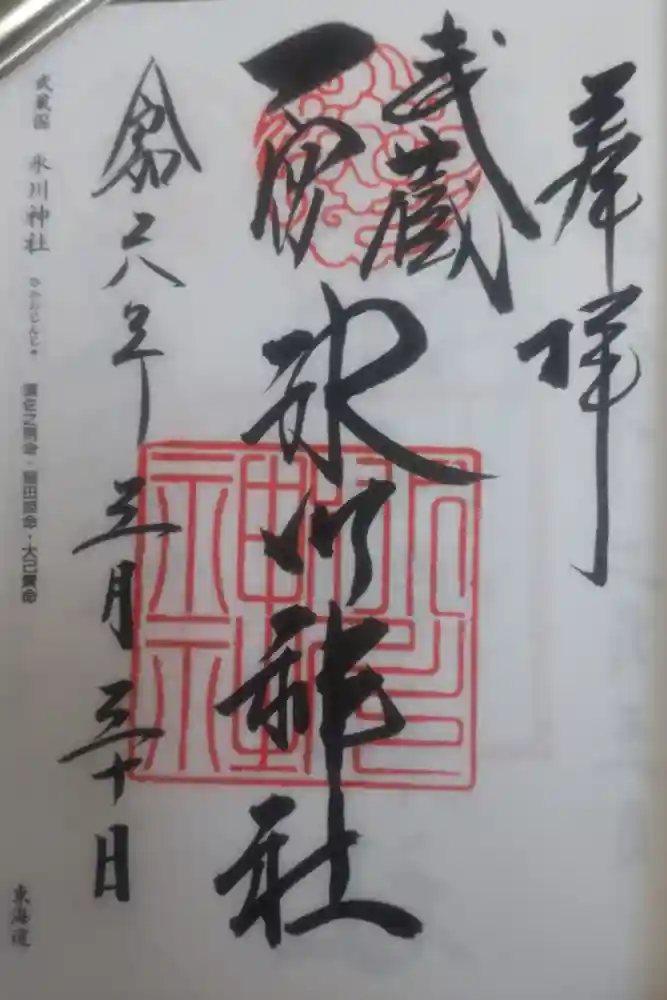 奉拝
武蔵
一宮
氷川神社
令和六年三月三十日
武蔵国 氷川神社 ひかわじんじゃ 須佐之男命・稲田姫命・大己貴命
東海道